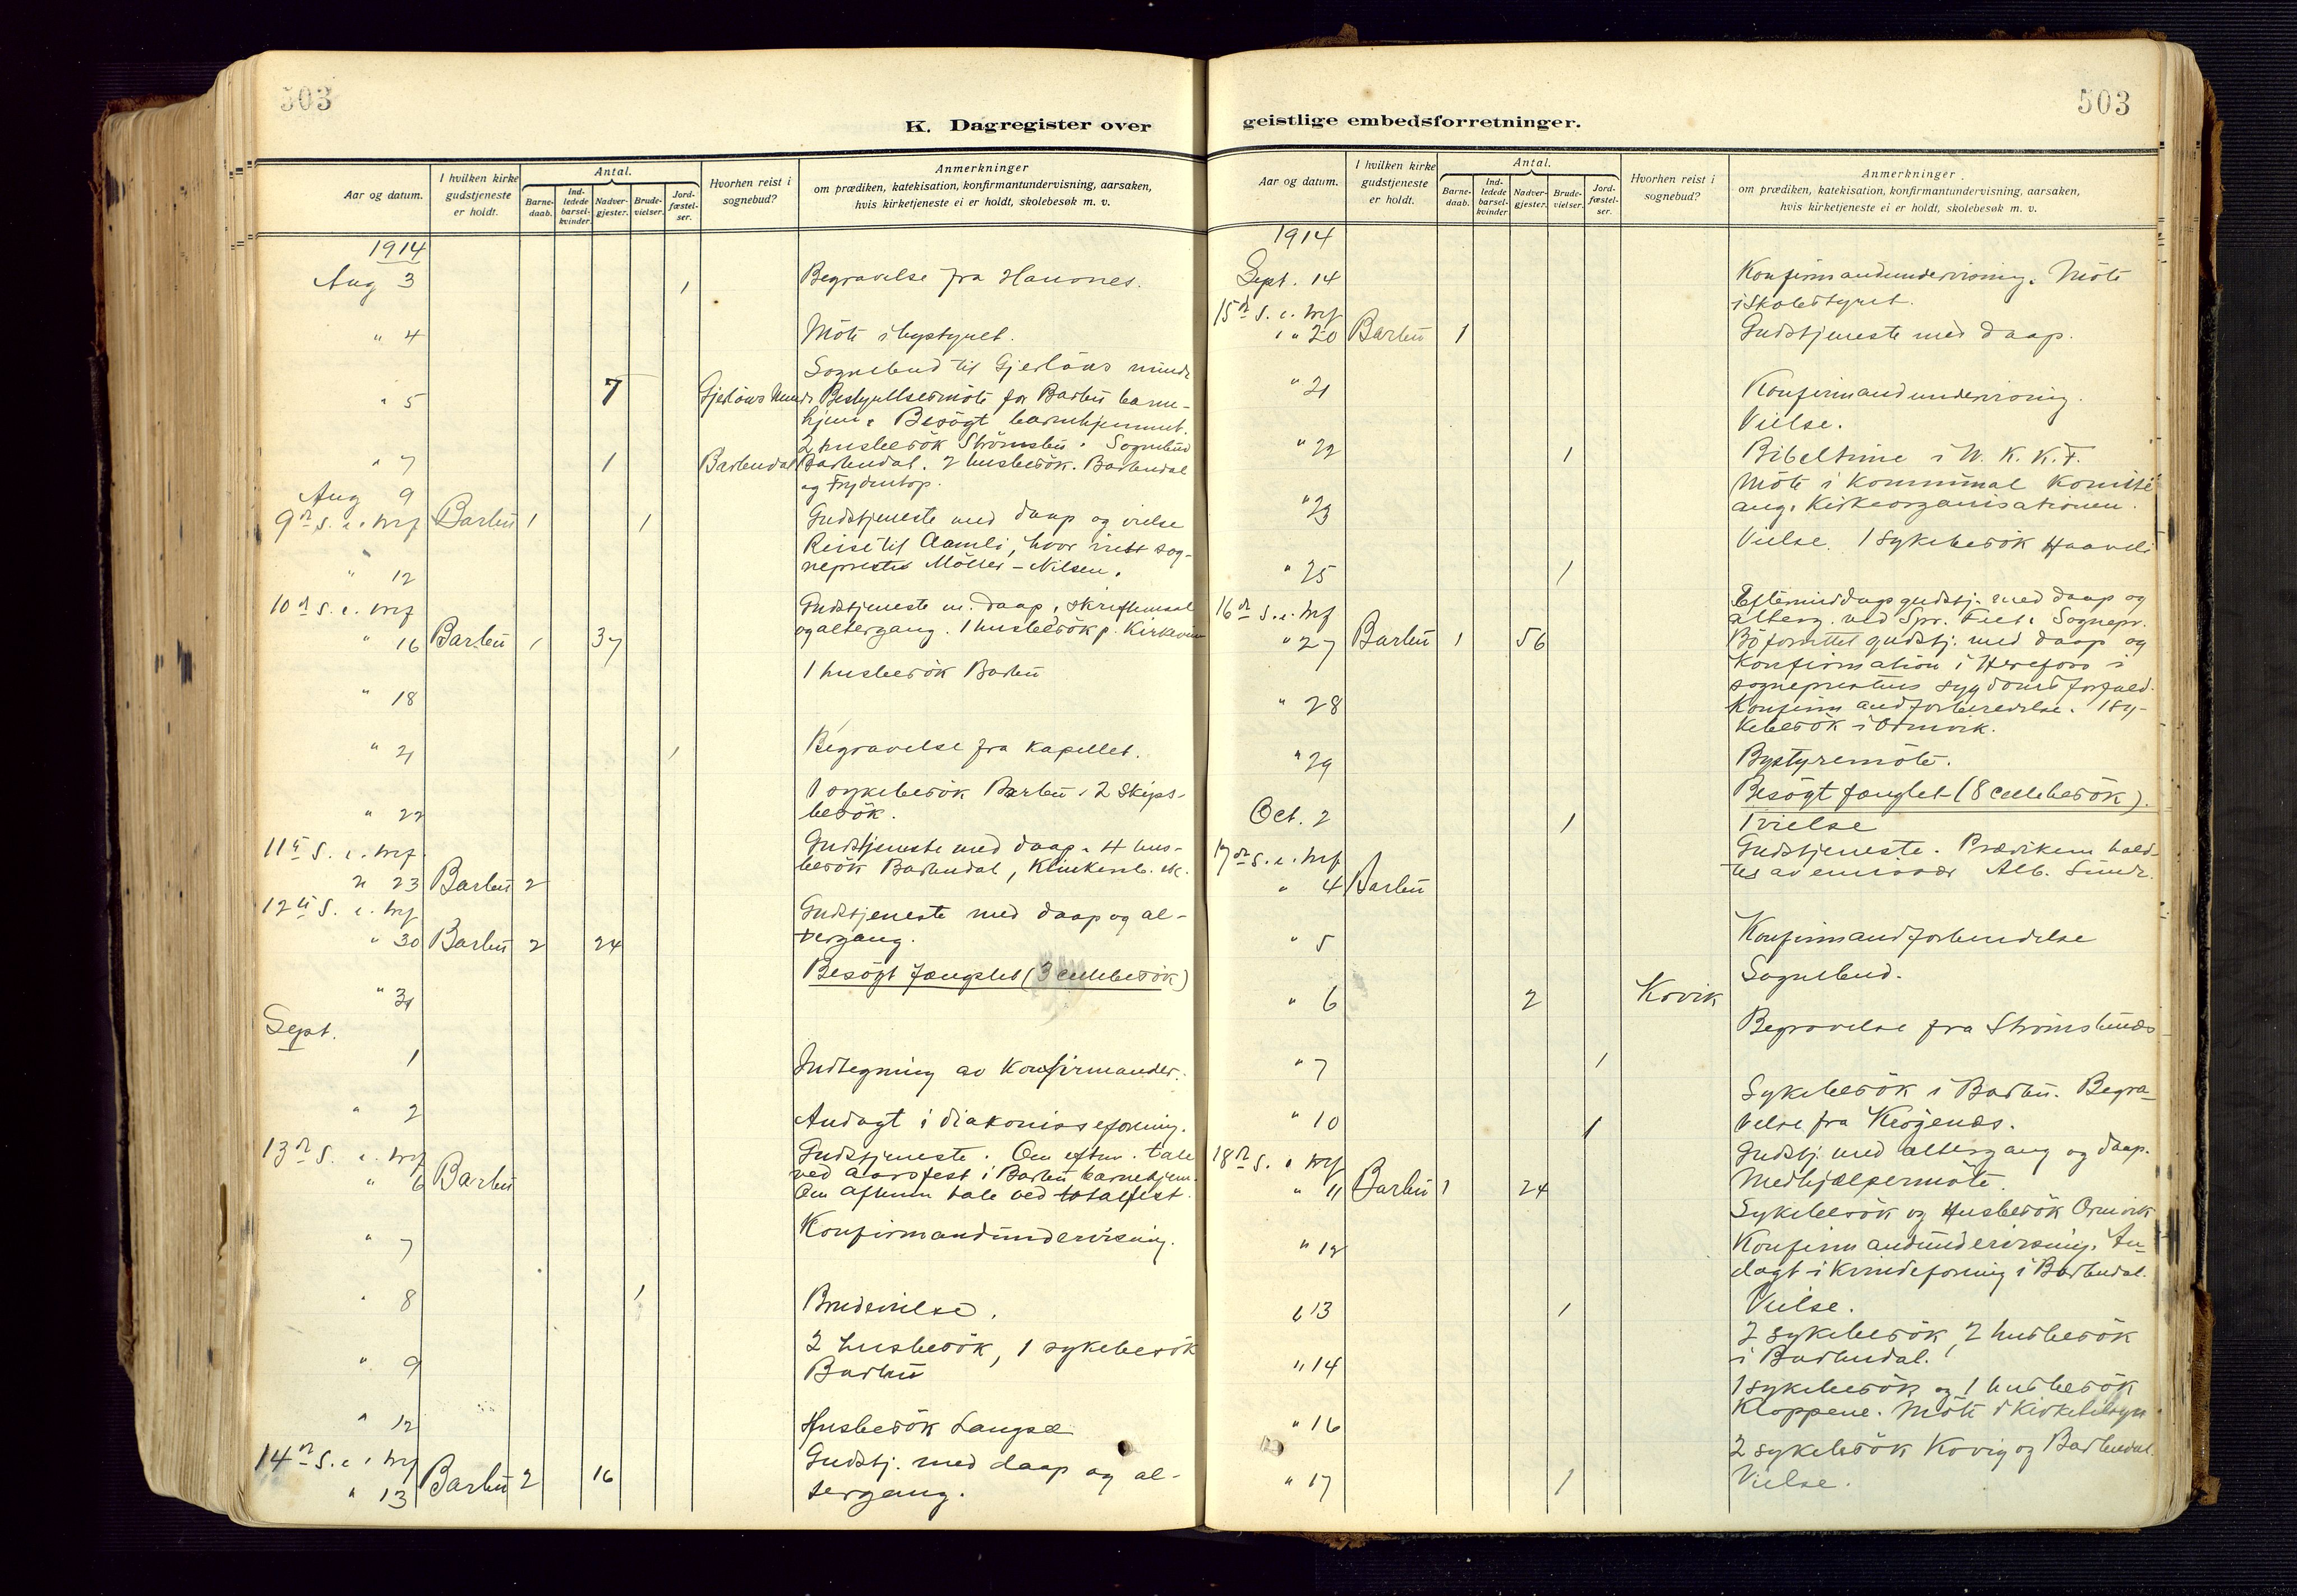 503
K. Dagregister over
Aar og datum.
I hvilken kirke
gudstjeneste
er holdt.
Antal.
Barne-
daab.
Ind-
ledede
barsel-
kvinder
Nadver-
gjester.
Brude-
vielser.
Jord-
fæstel-
ser.
Hvorhen reist i
sognebud?
Anmerkninger
om prædiken, katekisation, konfirmantundervisning, aarsaken,
hvis kirketjeneste ei er holdt, skolebesøk m. v.
1914
Aug 3 1 Begravelse fra
" 4 Möte i bystyret.
Sognebud til Gjerlöws minde
" 5 7 Gjerlöws Minde Bestyrelsesmöte for Barbu barne-
hjem. Besögt barnehjemmet.
2 husbesök Strömsbu. Sognebud
" 7 1 Barbudal Barbudal. 2 husbesök. Barbudal
og Frydentop.
Aug 9
9de S. e. tref Barbu 1 1 Gudstjeneste med daap og vielse
Reise til Aamli, hvor
" 12 Möller-Nilsen.
10de S. e. tref Gudstjeneste m. daap, skriftemaal
" 16 Barbu 1 37 og altergang. 1 husbesök p.
" 18 1 husbesök Barbu
" 21 1 Begravelse fra kapellet.
" 22 1 sykebesök Barbu. 2 skips-
besök.
11te S. e. tref. Gudstjeneste med daap. 4 hus-
" 23 Barbu 2 besök Barbudal, Klinkenb. etc.
12te S. e. tref
" 30 Barbu 2 24 Gudstjeneste med daap og al-
tergang.
" 31 Besögt fængslet (3 cellebesök)
Sept.
1 Indtegning av konfirmander.
" 2 Andagt i diakonisseforening.
13de S. e. tref Gudstjeneste. Om efterm. tale
" 6 Barbu ved aarsfest i Barbu barnehjem.
Om aftenen tale ved totalfest.
" 7 Konfirmandundervisning.
" 8 1 Brudevielse.
" 9 2 husbesök, 1 sykebesök
Barbu
" 12 Husbesök Langsæ
14de S. e. tref Gudstj. med daap og al-
" 13 Barbu 2 16 tergang.
503
geistlige embedsforretninger.
Aar og datum.
I hvilken kirke
gudstjeneste
er holdt.
Antal.
Barne-
daab.
Ind-
ledede
barsel-
kvinder
Nadver-
gjester.
Brude-
vielser.
Jord-
fæstel-
ser.
Hvorhen reist i
sognebud?
Anmerkninger.
om prædiken, katekisation, konfirmantundervisning, aarsaken,
hvis kirketjeneste ei er holdt, skolebesøk m. v.
1914
Sept. 14 Konfirmandundervisning. Möte
i skolestyret.
15de S. e. tref
" 20 Barbu 1 Gudstjeneste med daap.
" 21 Konfirmandundervisning.
" 22 1 Vielse.
Bibeltime i K. K. F.
" 23 Möte i kommunal komité
ang. kirkeorganisationen.
" 25 1 Vielse. 1 sykebesök
16de S. e. tref Eftermiddagsgudstj. med daap og
alterg. ved Spr. Sognepr.
" 27 Barbu 1 56 forrettet gudstj. med daap og
konfirmation i Herefoss i
sogneprestens sygdomsforfald.
" 28 Konfirmandforberedelse. 1 sy-
kebesök i
" 29 Bystyremöte.
Besögt fængslet (8 cellebesök).
Oct. 2 1 1 vielse
17de S. e. tref Gudstjeneste. Prædiken hold-
" 4 Barbu tes av emissær Alb.
" 5 Konfirmandforberedelse
" 6 2 Kovik Sognebud.
" 7 1 Begravelse fra Strömsbunæs
Sykebesök i Barbu. Begra-
" 10 1 velse fra
18de S. e. tref Gudstj. med altergang og daap.
" 11 Barbu 1 24 Medhjælpermöte.
Sykebesök og husbesök
" 12 Konfirmandundervisning. An-
dagt i kvindeforening i Barbudal.
" 13 1 Vielse.
" 14 2 sykebesök, 2 husbesök
i Barbudal.
1 sykebesök og 1 husbesök
" 16 Kloppene. Möte i kirketilsyn
2 sykebesök Kovig og Barbudal.
" 17 1 Vielse.